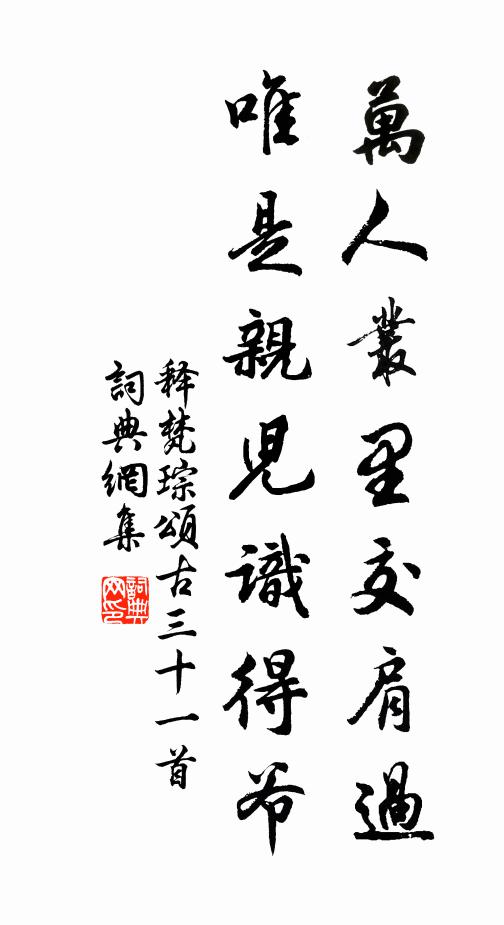 萬人叢里交肩過
唯是親児識得爷
释梵琮頌古三十一首
詞典網集
詞典
网印